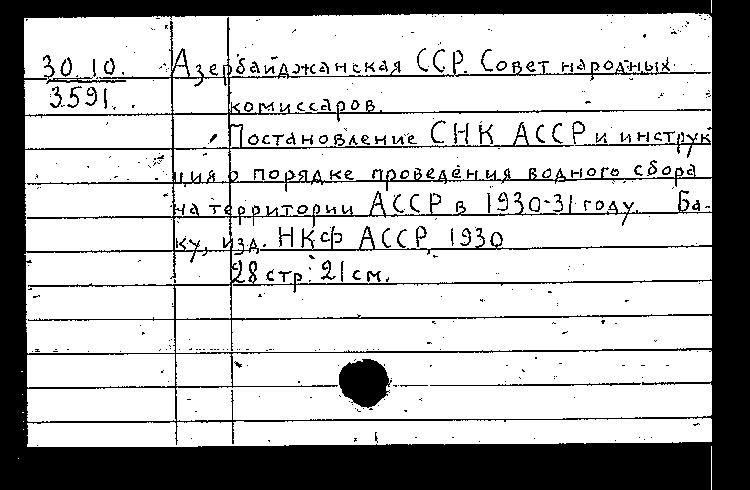 30 10. Азербайджанская ССР. Совет народных
3591. комиссаров.
Постановление СНК АССР и инструк
ция о порядке проведения водного сбора
на территории АССР в 1930-31 году. Ба-
ку, изд. НКФ АССР, 1930
28 стр. 21 см.